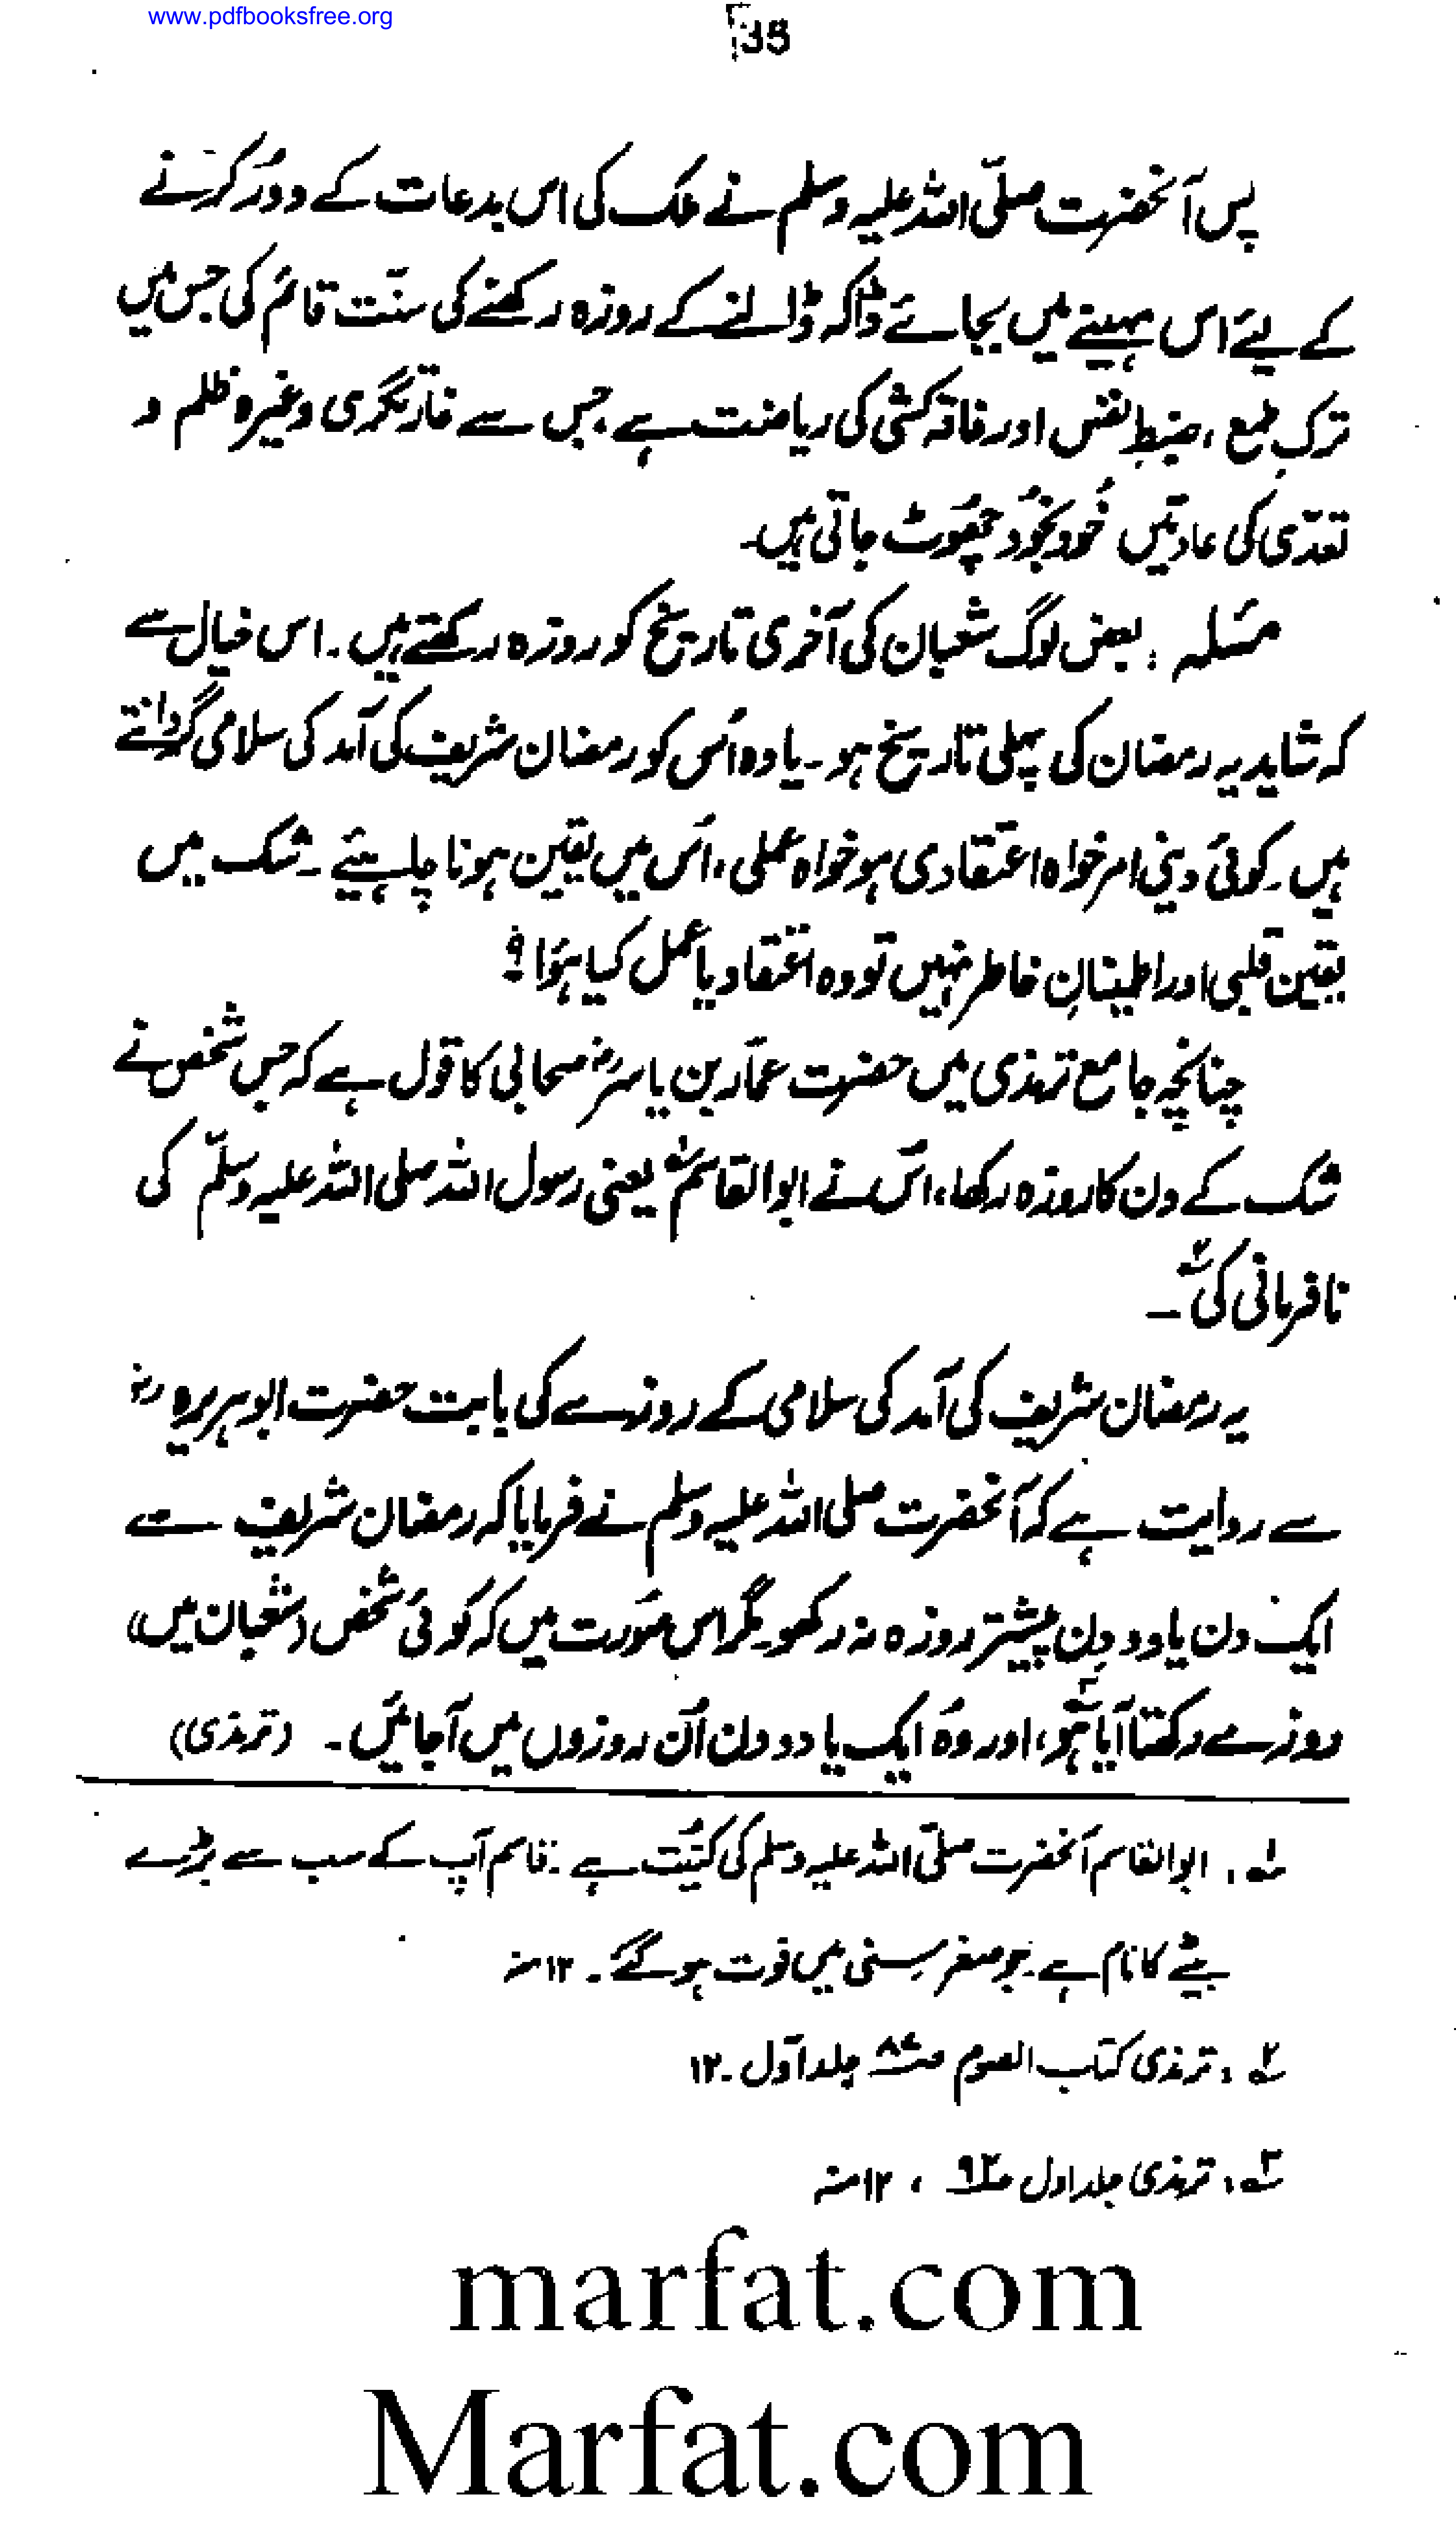 www.pdfbooksfree.org
35
پس آنحضرت صلّی اللہ علیہ وسلم نے ملک کی اس بدعات کے دورُ کرنے
کے لیے اس مہینے میں بجائے ڈاکہ ڈالنے کے روزہ رکھنے کی سنّت قائم کی جس میں
ترکِ طمع ، ضبطِ نفس اور فاقہ کشی کی ریاضت ہے ، جس سے غارتگری وغیرہ ظلم و
تعدّی کی عادتیں خُود بخُود چھُوٹ جاتی ہیں۔
مسٔلہ : بعض لوگ شعبان کی آخری تاریخ کو روزہ رکھتے ہیں ۔ اس خیال سے
کہ شاید یہ رمضان کی پہلی تاریخ ہو ۔ یا وہ اُس کو رمضان شریف کی آمد کی سلامی گردانتے
ہیں ۔ کوئی دینی امر خواہ اعتقادی ہو خواہ عملی ، اُس میں یقین ہونا چاہیئے ۔ شک میں
یقین قلبی اور اطمینانِ خاطر نہیں تو وہ اعتقاد یا عمل کیا ہؤا ؟
چنانچہ جامع ترمذی میں حضرت عمّار بن یاسرؓ صحابی کا قول ہے کہ جس شخص نے
شک کے دن کا روزہ رکھا ، اُس نے ابوالقاسم ؎۱ یعنی رسول اللہ صلی اللہ علیہ وسلّم کی
نافرمانی کی ؎۲ ۔
یہ رمضان شریف کی آمد کی سلامی کے روزے کی بابت حضرت ابوہریرہ رضؓ
سے روایت ہے کہ آنحضرت صلی اللہ علیہ وسلم نے فرمایا کہ رمضان شریف سے
ایک دن یا دو دِن پیشتر روزہ نہ رکھو ۔ مگر اس صُورت میں کہ کوئی شخص (شعبان میں)
روزے رکھتا آیا ہو ؎۳ ، اور وُہ ایک یا دو دن اُن روزوں میں آجائیں ۔ (ترمذی)
؎۱ ، ابوالقاسم آنحضرت صلّی اللہ علیہ وسلم کی کنیُت ہے ۔ قاسم آپ کے سب سے بڑے
بیٹے کا نام ہے ۔ جو صغر سنی میں فوت ہو گئے ۔ ۱۲ منہ
؎۲ ، ترمذی کتاب الصوم ص۸۷ جلد اوّل ۔ ۱۲
؎۳ ، ترمذی جلد اول ص۹۲ ، ۱۲ منہ
marfat.com
Marfat.com